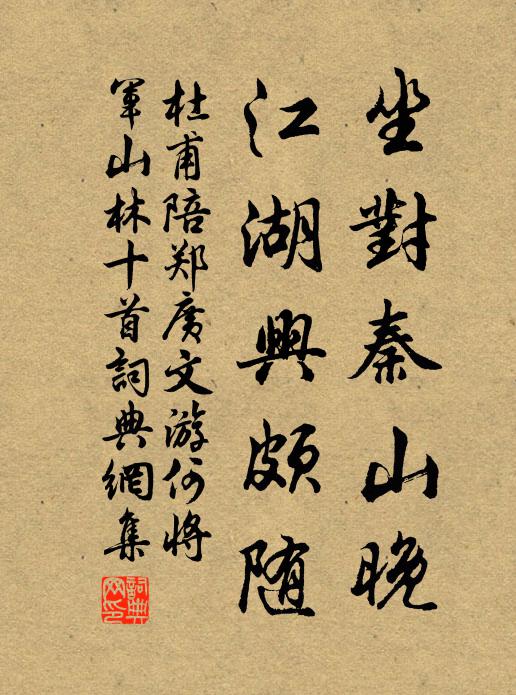 坐對秦山晚
江湖興頗随
杜甫陪郑廣文游何將
軍山林十首詞典網集
詞典
网印